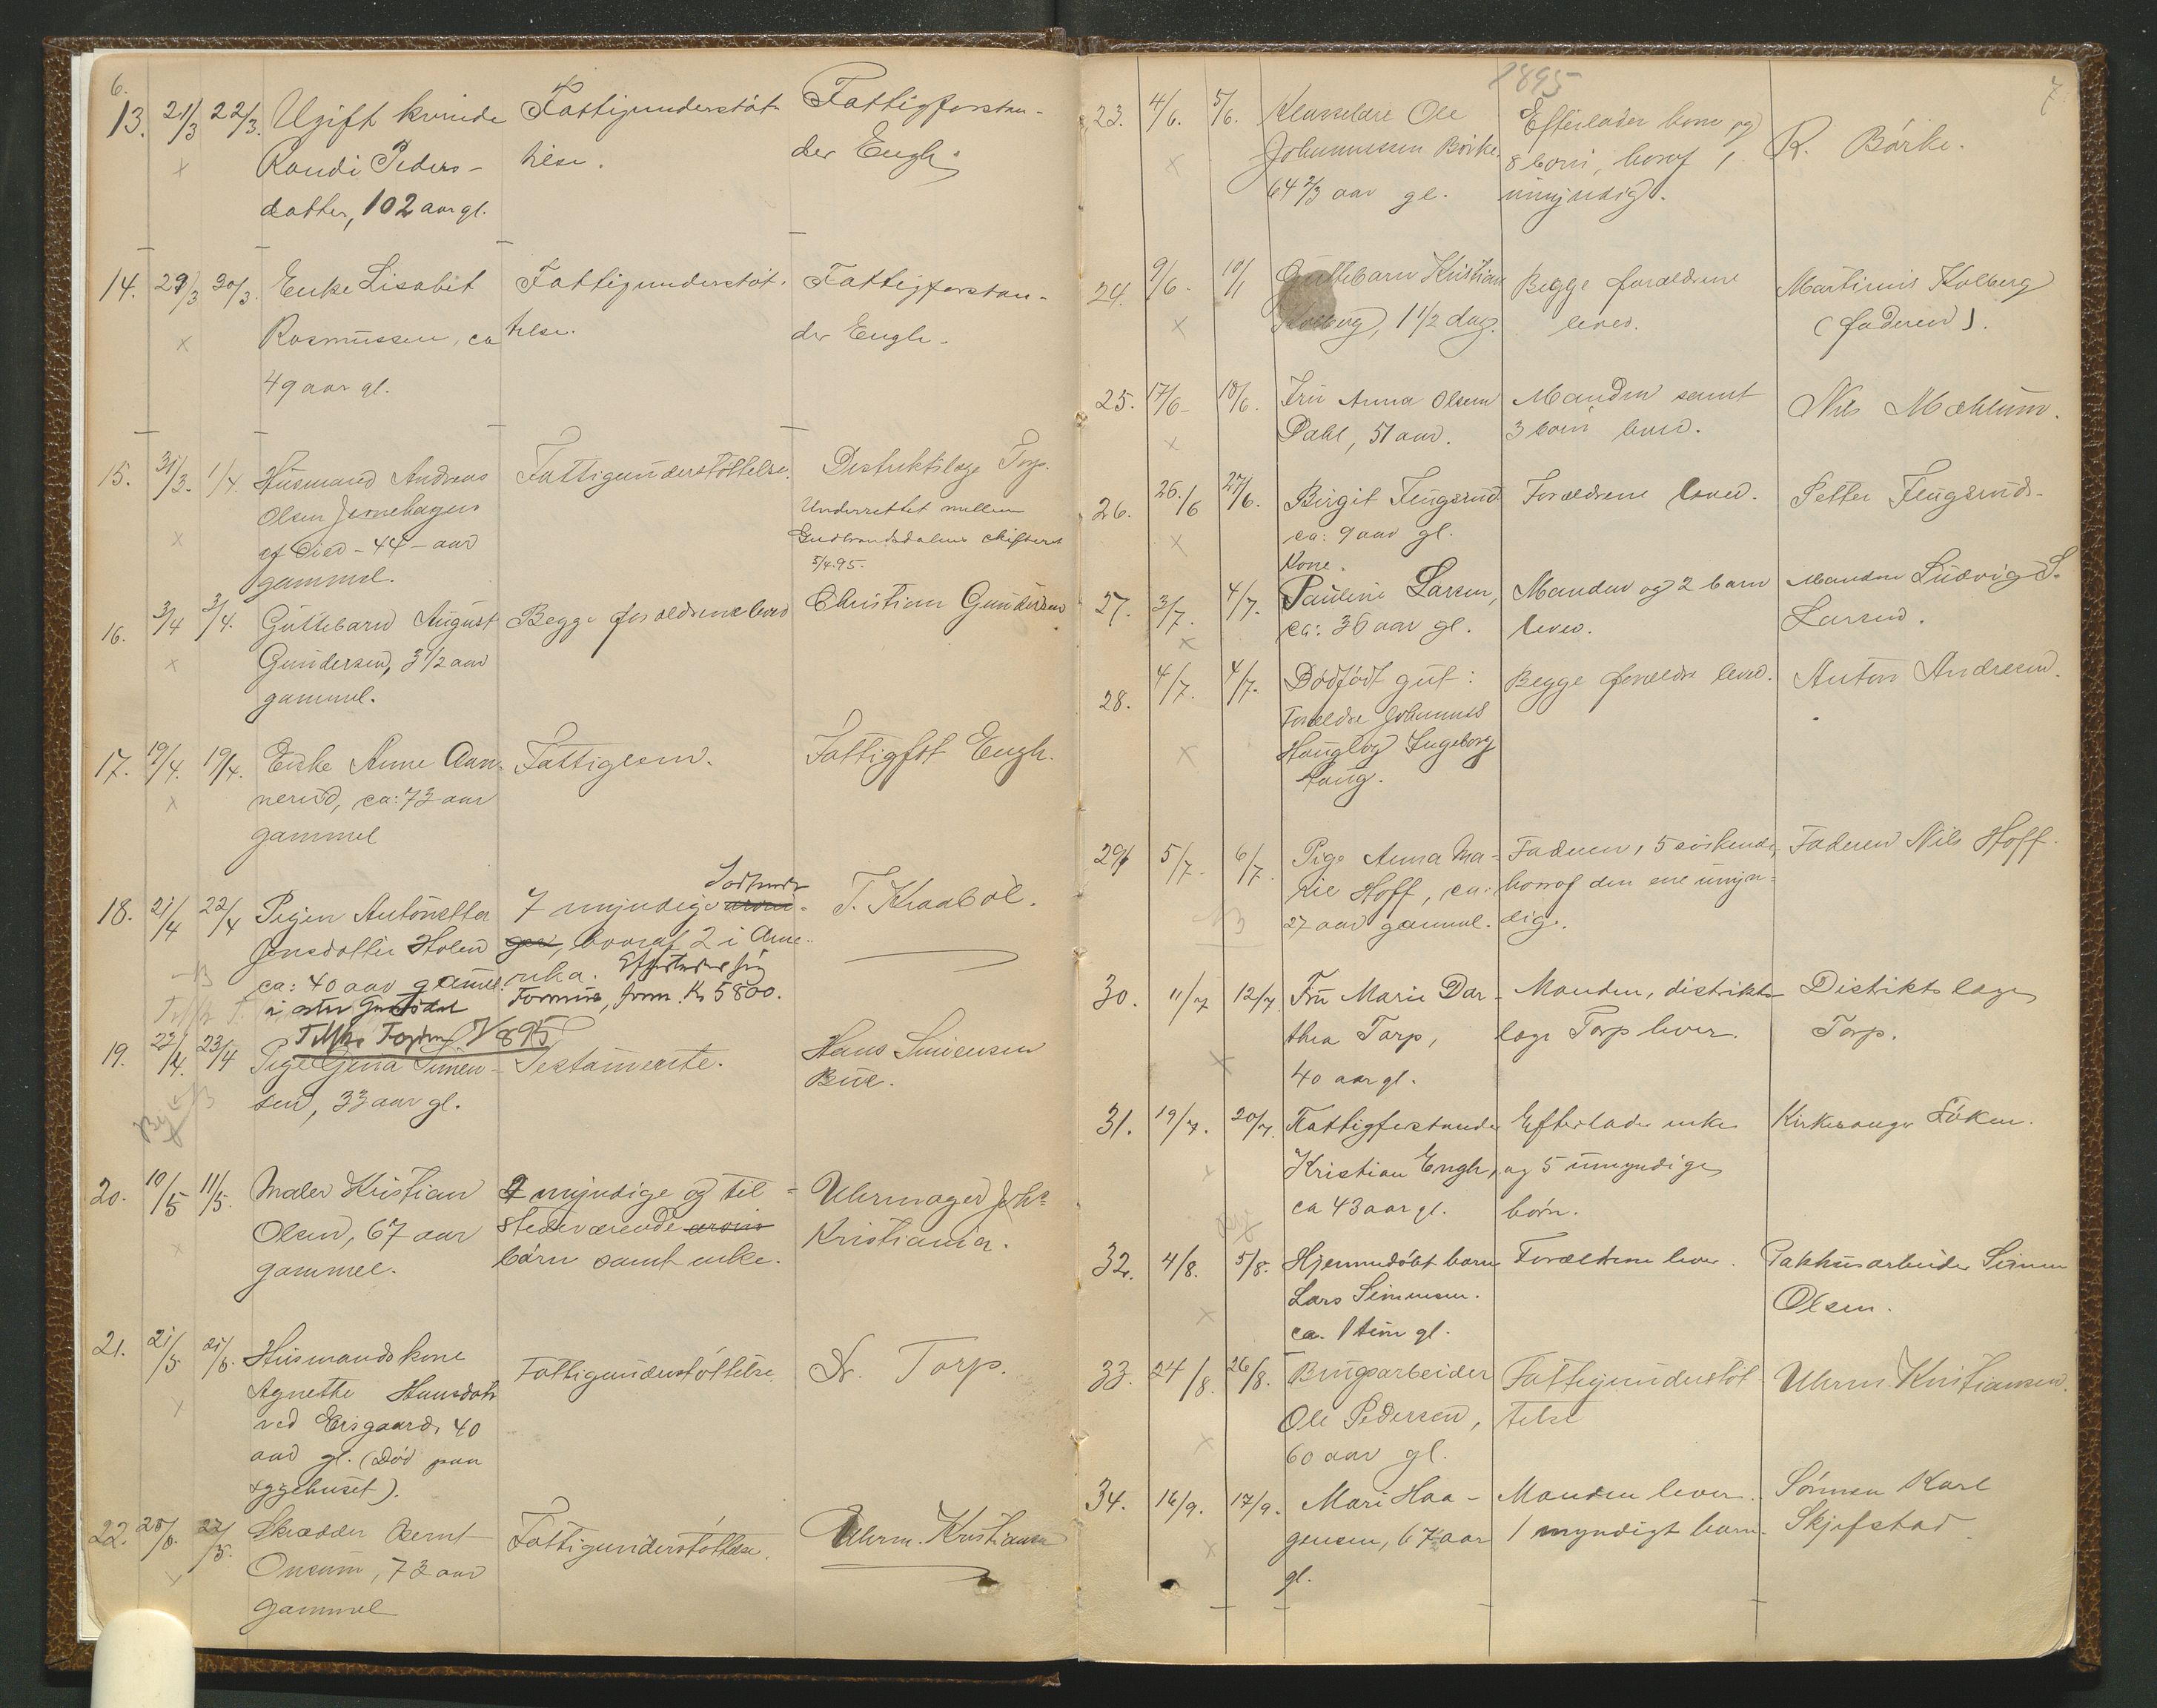 6.
13. 21/3 22/3. Ugift kvinde Fattigunderstøt- Fattigforstan-
Randi Peders- telse. der Engh.
datter, 102 aar gl.
14. 29/3 30/3. Enke Lisabet Fattigunderstøt- Fattigforstan-
Rasmussen, ca telse. der Engh.
49 aar gl.
15. 31/3. 1/4. Husmand Andreas Fattigunderstøttelse. Distriktslæge Torp.
Olsen Underrettet mellem
44 - aar Gudbrandsdalens
gammel. 5/4.95.
16. 3/4 3/4. Guttebarn August Begge forældrene lever Christian Gundersen
Gundersen, 3 1/2 aar
gammel.
17. 19/4. 19/4. Enke Anne Aan- Fattiglem. Fattigfst Engh.
nerud, ca: 73 aar
gammel
18. 21/4 22/4 Pigen Antonette 7 myndige Sødskende T. Kraabøl.
Jonsdatter Holen hvoraf 2 i Ame-
ca: 40 aar gammel rika. Efterlader sig
Formue, Kr 5800.
19. 22/4. 23/4 Pige Gina Simen- Testamente. Hans Simensen
sen, 33 aar gl. Bue.
20. 10/5 11/5. Maler Kristian myndige og til- Uhrmager Johs
Olsen, 67 aar stedeværende Kristiania.
gammel. børn samt enke.
21. 21/5 21/5. Husmandskone Fattigunderstøttelse. Dr. Torp.
Agnethe Hansdatr
ved Ersgaard, 40
aar gl. (død paa
sygehuset).
22. 22/5. Skrædder Bernt Fattigunderstøttelse. Uhrm. Kristiansen
Onsum, 73 aar
gammel
1895
7
23. 4/6. 5/6. Ole Efterlader kone og R. Børke.
Johannessen Børke. 8 børn, hvoraf 1
64 2/3 aar gl. umyndig.
24. 9/6. Guttebarn Kristian Begge forældrene Martinus Kolberg
Kolberg, 1 1/2 dag. lever. (faderen).
25. 17/6 18/6. Fru Anna Olsen Manden samt Nils Mæhlum.
Dahl, 51 aar. 3 børn lever.
26. 26./6 27/6. Birgit Flugsrud Forældrene lever. Petter Flugsrud.
ca: 9 aar gl.
27. 3/7. 4/7. Kone. Pauline Larsen, Manden og 2 barn Manden Ludvig S.
ca: 36 aar gl. lever. Larsen.
28. 4/7. 4/7. Dødfødt gut: Begge forældre lever. Anton Andresen.
Forældre Johannes
Haug og Ingeborg
Haug.
29. 5/7. 6/7. Pige Anna Ma- Faderen, 5 søskende, Faderen Nils Hoff.
rie Hoff, ca. hvoraf den ene umyn-
27 aar gammel. dig.
30. 11/7 12/7 Fru Marie Dor- Manden, distrikts- Distriktslæge
thea Torp, læge Torp lever. Torp.
40 aar gl.
31. 19/7. 20/7. Fattigforstander Efterlader enke Kirkesanger Løken.
Kristian Engh, og 5 umyndige
ca 43 aar gl. børn.
32. 4/8. 5/8. Hjemmedøbt barn Forældrene lever. Pakhusarbeider Simen
Lars Simensen. Olsen.
ca. 1 time gl.
33. 24/8. 26/8. Brugsarbeider Fattigunderstøt- Uhrm Kristiansen.
Ole Pedersen, telse
60 aar gl.
34. 16/9. 17/9. Mari Haa- Manden lever. Sønnen Karl
gensen, 67 aar 1 myndigt barn. Skjefstad.
gl.